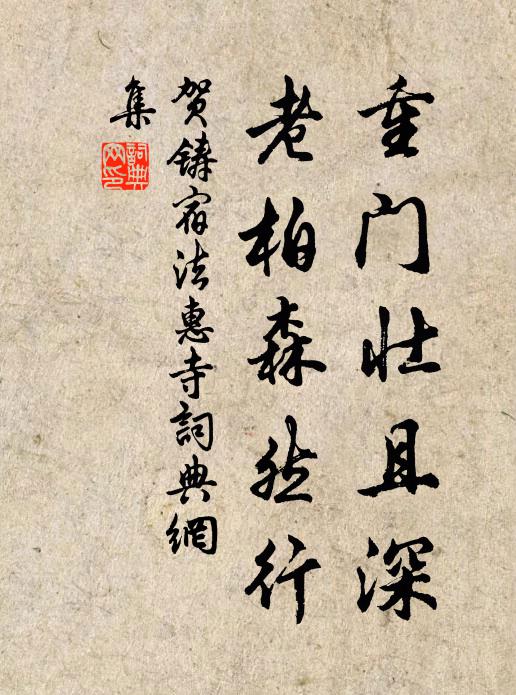 重门壮且深
老柏森然行
贺铸宿法惠寺詞典網
集
詞典網印